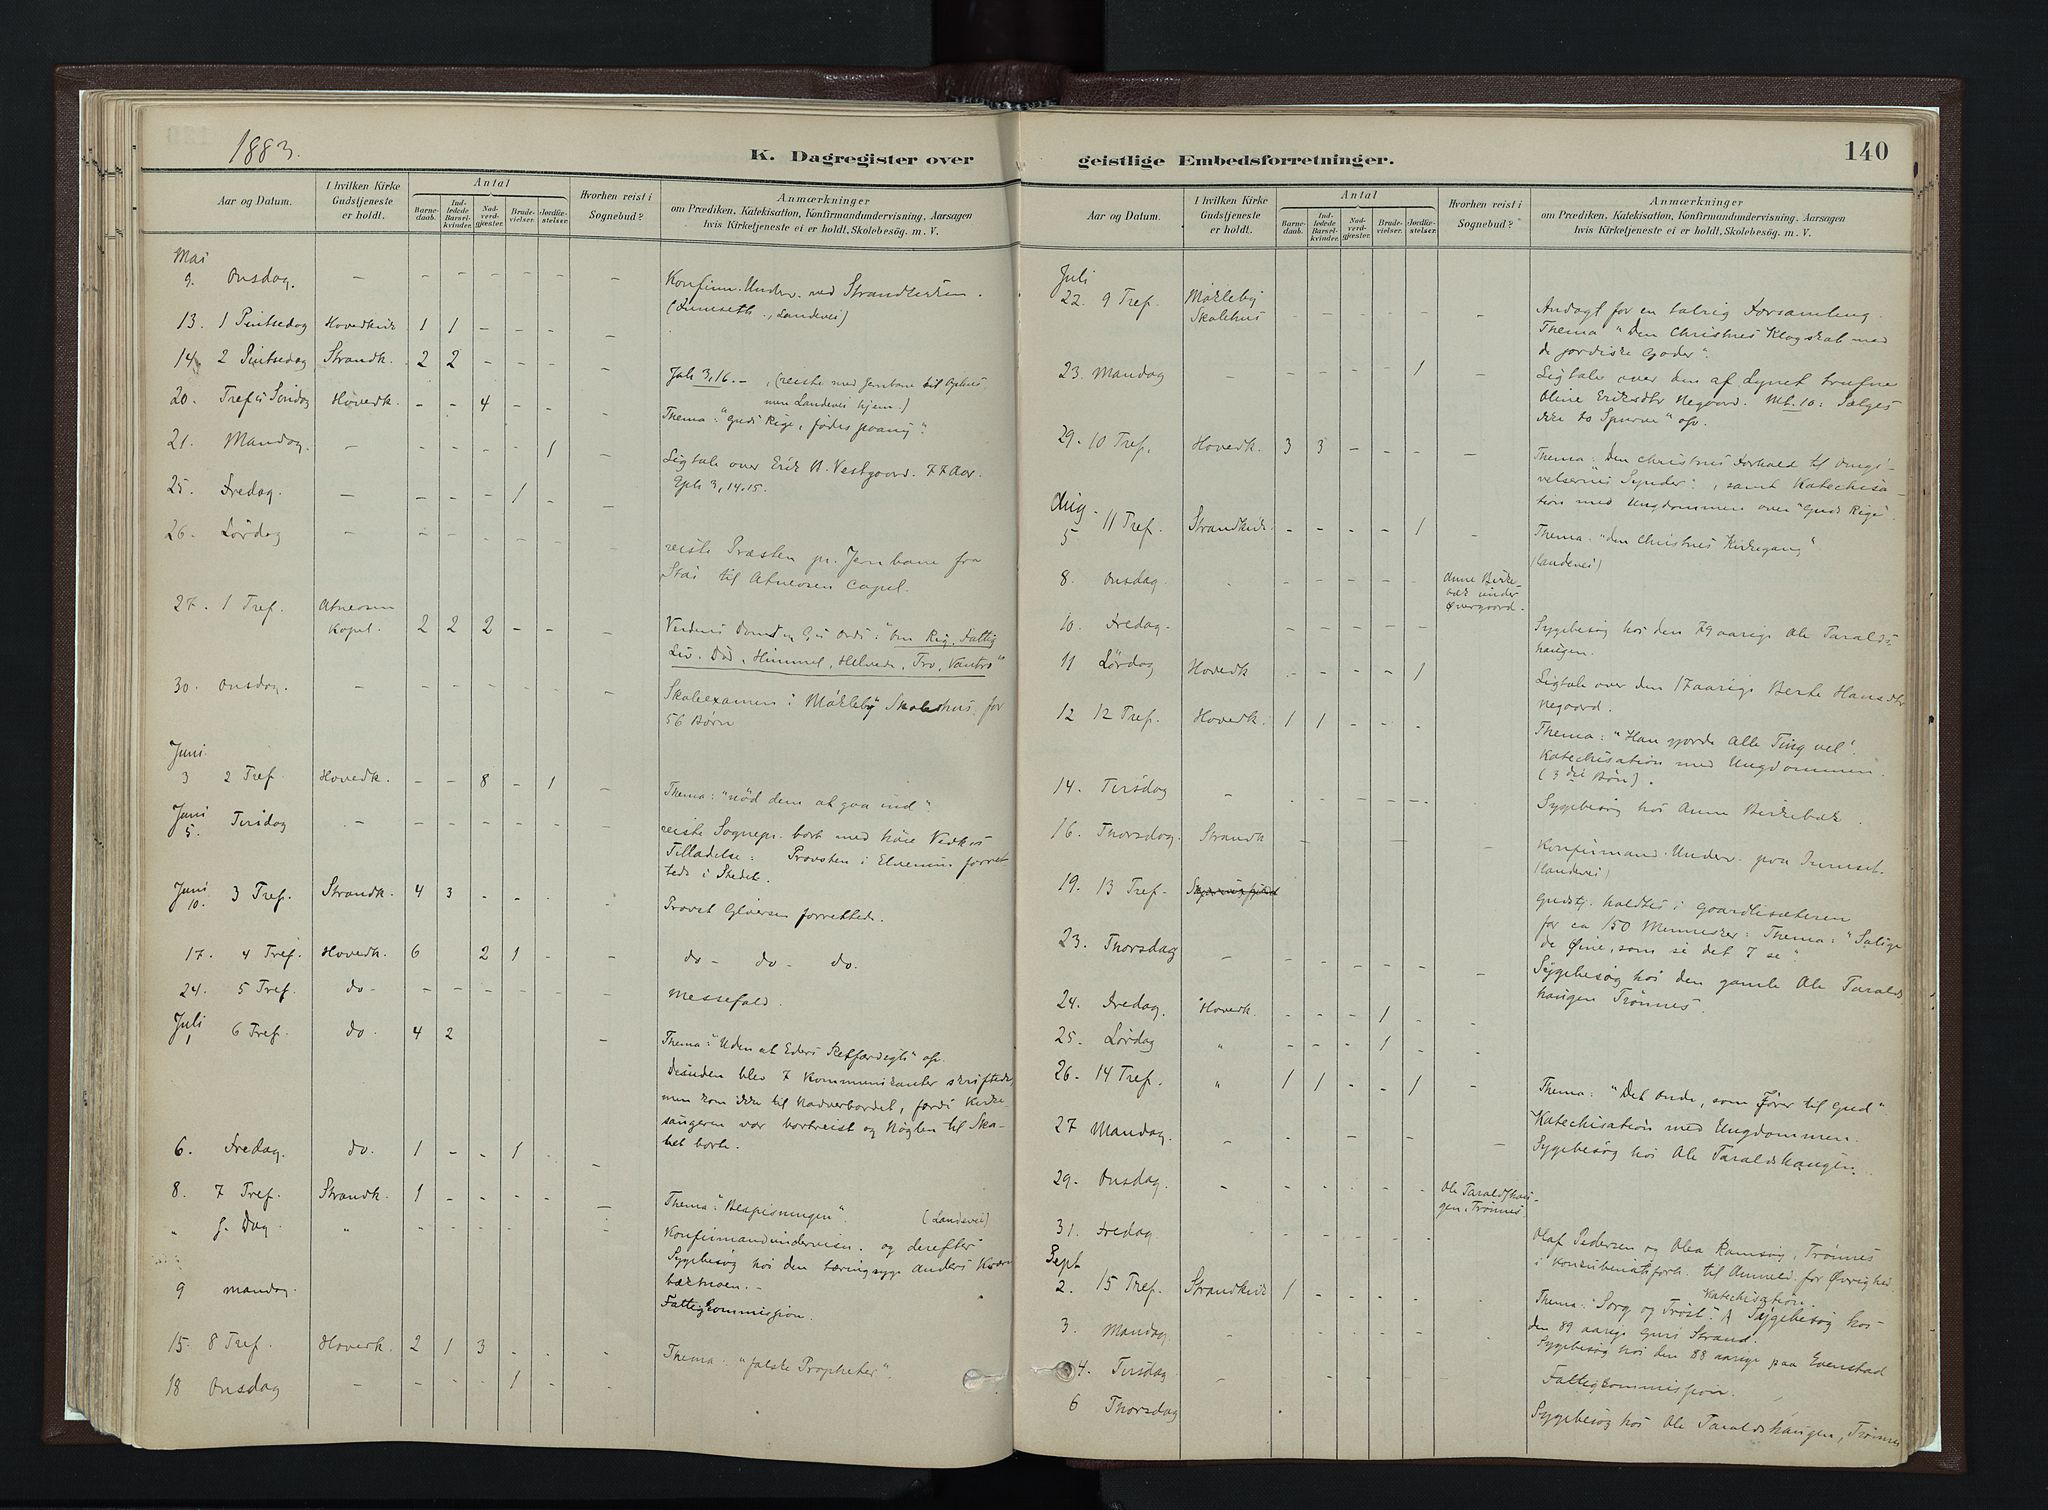 1883.
K. Dagregister over
Aar og Datum.
I hvilken Kirke Gudstjeneste er holdt.
Antal
Barne-daab.
Ind-ledede Barsel-kvinder.
Nad-verd-gjæster.
Brude-vielser.
Jordfæ-stelser.
Hvorhen reist i Sognebud?
Anmærkninger
om Prædiken, Katekisation, Konfirmandundervisning, Aarsagen
hvis Kirketjeneste ei er holdt, Skolebesøg. m. V.
Mai
9. Onsdag. – – – – – – – Konfirm. Underv. ved Strandkirken.
Landevei)
13. 1 Pintsedag Hovedkirk 1 1 – – – –
14 2 Pintsedag Strandk. 2 2 – – – – Joh 3,16. – (reiste med Jernbane til Ophus,
men Landevei hjem.)
20. Tref.s Søndag Hovedk. – – 4 – – – Thema: "Guds Rige, fødes paany".
21. Mandag. – – – – – 1 – Ligtale over Erik N. Vestgaard. 77 Aar.
Eph 3, 14.15.
25. Fredag. – – – – 1 – –
26. Lørdag – – – – – – – reiste Præsten pr. Jernbane fra
Stai til Atneosen Capel.
27. 1 Tref. Atneosen
Kapel. 2 2 2 – – – Verdens Dom og Guds Ords: "om Rig, Fattig
Liv. Død, Himmel, Helvede, Tro, Vantro"
30. Onsdag. – – Skoleexamen i Møkleby Skolehus for
56 Børn
Juni
3 2 Tref. Hovedk. – – 8 – 1 – Thema: "nød dem at gaa ind".
Juni
5. Tirsdag – – – – – – – reiste Sognepr. bort med høie Vedk.s
Tilladelse: Provsten i Elverum forret
tede i Stedet.
Juni
10. 3 Tref. Strandk. 4 3 – – – – Provst Gløersen forrettede.
17. 4 Tref. Hovedk. 6 2 1 – – do – do – do.
24. 5 Tref. do – – – – – – – Messefald.
Juli
1 6 Tref. do. 4 2 – Thema: "Uden at Eders Retfærdigh" osv.
Desuden blev 7 Kommunikanter skriftede,
men kom ikke til Nadverbordet, fordi Kirke-
sangeren var bortreist og Nøglen til Ska-
bet borte.
6. Fredag. do. 1 – – 1 – –
8. 7 Tref. Strandk. 1 – – – – – Thema: "Bespisningen". (Landevei)
" S. Dag. " – – – – – – Konfirmandundervisn. og derefter
Sygebesøg hos den tæringsyge Anders Kværn
bækmoen. –
9 Mandag. Fattigkommission.
15. 8 Tref. Hovedk. 2 1 3 – – – Thema: "falske Propheter".
18 Onsdag – – – – 1 – –
geistlige Embedsforretninger.
140
Aar og Datum.
I hvilken Kirke Gudstjeneste er holdt.
Antal
Barne-daab.
Ind-ledede Barsel-kvinder.
Nad-verd-gjæster.
Brude-vielser.
Jordfæ-stelser.
Hvorhen reist i Sognebud?
Anmærkninger
om Prædiken, Katekisation, Konfirmandundervisning, Aarsagen
hvis Kirketjeneste ei er holdt, Skolebesøg. m. V.
Juli
22. 9 Tref. Møkleby
Skolehus – – – – – – Andagt for en talrig Forsamling.
Thema "Den Christnes Klogskab med
de jordiske Goder".
23. Mandag – – – – – 1 – Ligtale over den af Lynet trufne
Oline Eriksdtr Negaard. Mt. 10: Sælges
ikke to Spurve" osv.
29. 10 Tref. Hovedk. 3 3 – – – – Thema: Den Christnes Forhold til Omgi-
velsernes Synder": , samt Katechisa-
tion med Ungdommen over "Guds Rige".
Aug.
5 11 Tref. Strandkirk. – – – – 1 – Thema: "den Christnes Kirkegang"
(Landevei)
8. Onsdag. Anne Birke-
bæk under
Øvergaard.
10. Fredag. – – – – – – Sygebesøg hos den 79 aarige Ole Taralds-
haugen.
11 Lørdag Hovedk – – – – 1 Ligtale over den 17 aarige Berte Hansdtr
Negaard.
12 12 Tref. Hovedk. 1 1 – – – – Thema: "Han gjorde alle Ting vel".
Katechisation med Ungdommen.
(3die Bøn).
14. Tirsdag – – – – – – Sygebesøg hos Anne Birkebæk.
16. Thorsdag. Strandk – – – Konfirmand. Underv. paa Imset.
(Landevei)
19. 13 Tref. Gudstj. holdtes i Gaardlisæteren
for ca 150 Mennesker: Thema: "Salige
de Øine, som se det I se".
23. Thorsdag – – – – – – – Sygebesøg hos den gamle Ole Taralds
haugen Trønnes.
24. Fredag. Hovedk. – – – 1 – –
25. Lørdag " – – – 1 – –
26. 14 Tref. " 1 1 – – 1 – Thema: "Det Onde, som Fører til Gud".
Katechisation med Ungdommen.
27 Mandag. – – – – – – – Sygebesøg hos Ole Taraldshaugen.
29. Onsdag. – – – – – – Ole Taraldshau-
gen. Trønnes.
31. Fredag – – – – – – Olaf Pedersen og Olea Ramsøy, Trønnes
i Konkubinatsforh. til Anmeld. for Øvrighed
Sept
2. 15 Tref. Strandkirk 1 – – – – – Katechisation.
Thema: "Sorg og Trøst". Sygebesøg hos
den 89 aarige Guri Strand.
3. Mandag – – – – – – Sygebesøg hos den 88 aarige paa Evenstad
4. Tirsdag Fattigkommission.
6 Thorsdag Sygebesøg hos Ole Taraldshaugen, Trønnes